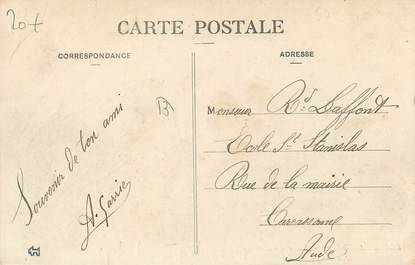 20+
CARTE POSTALE
CORRESPONDANCE
ADRESSE
B
Monsieur Rd. Laffont
Ecole St Stanislas
Rue de la mairie
Carcassonne
Aude
Souvenir de ton ami
A. Garric